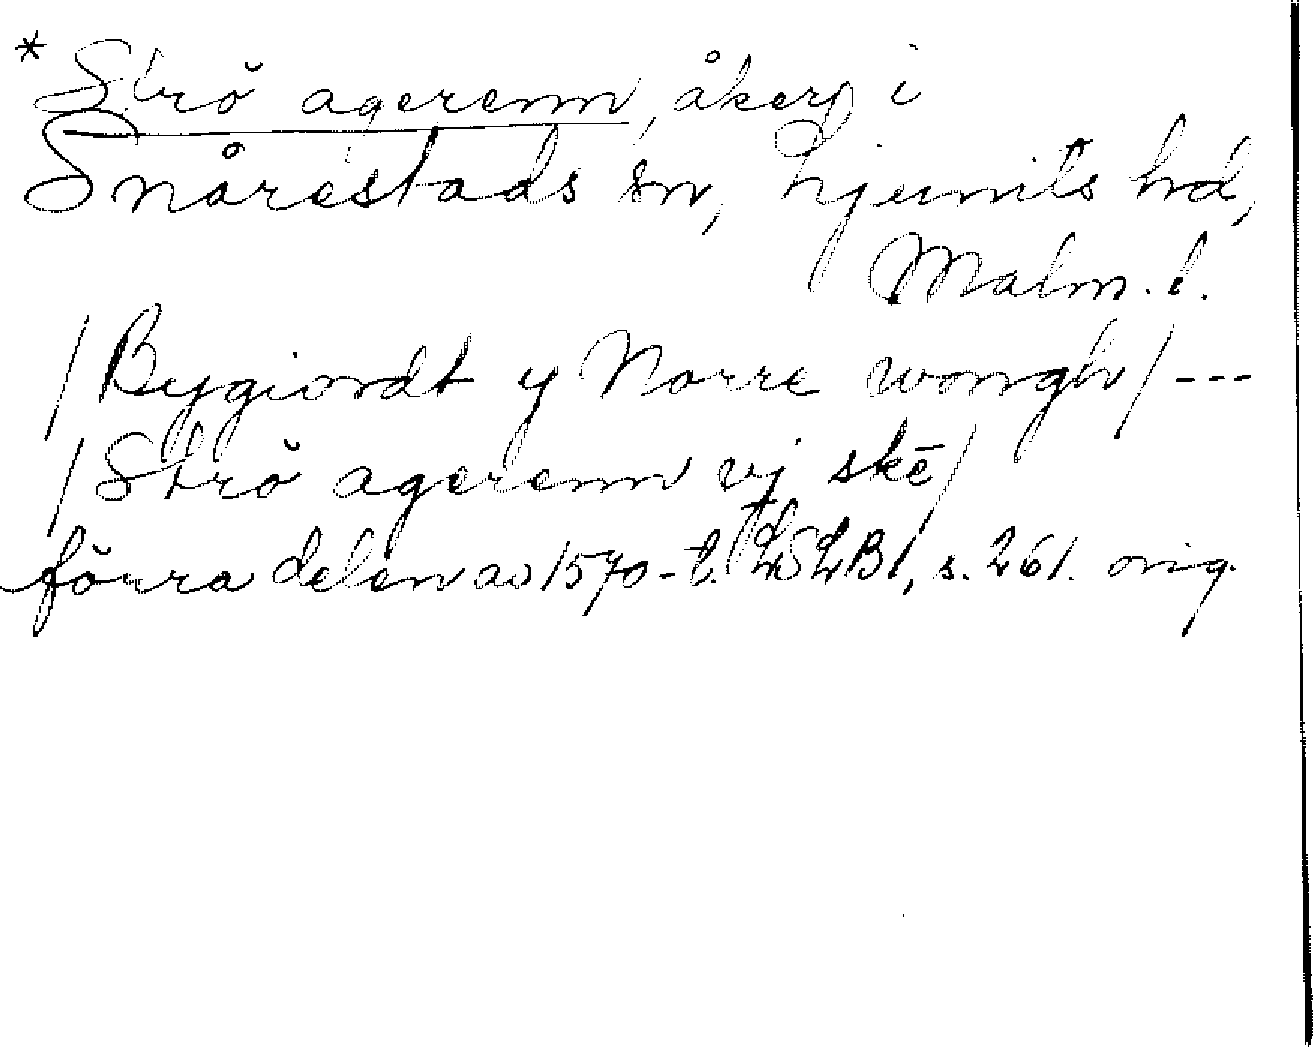 * Strö agerenn, åkerj i
Snårestads sn, Ljunits hd,
Malm. l.
/Bygiordt y Norre wongh/ ---
/Strö agerenn vj skē/
förra delen av 1570-t. LSLB 1, s. 261. orig.